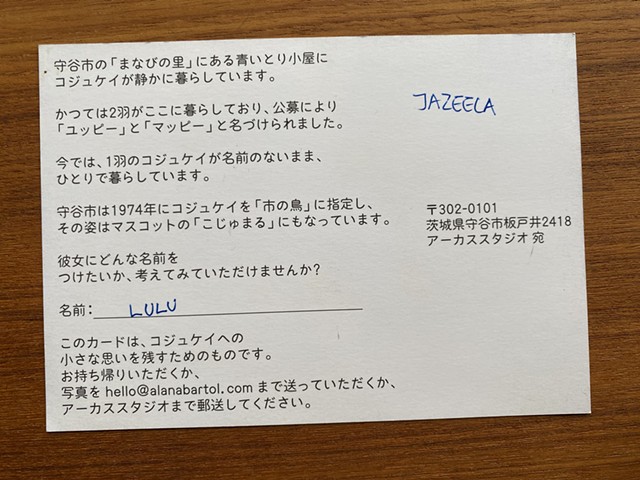 守谷市の「まなびの里」にある青いとり小屋に
コジュケイが静かに暮らしています。
かつては2羽がここに暮らしており、公募により
「ユッピー」と「マッピー」と名づけられました。
今では、1羽のコジュケイが名前のないまま、
ひとりで暮らしています。
守谷市は1974年にコジュケイを「市の鳥」に指定し、
その姿はマスコットの「こじゅまる」にもなっています。
彼女にどんな名前を
つけたいか、考えてみていただけませんか?
名前: LULU
このカードは、コジュケイへの
小さな思いを残すためのものです。
お持ち帰りいただくか、
写真を hello@alanabartol.com まで送っていただくか、
アーカススタジオまで郵送してください。
JAZEELA
〒302-0101
茨城県守谷市板戸井2418
アーカススタジオ 宛